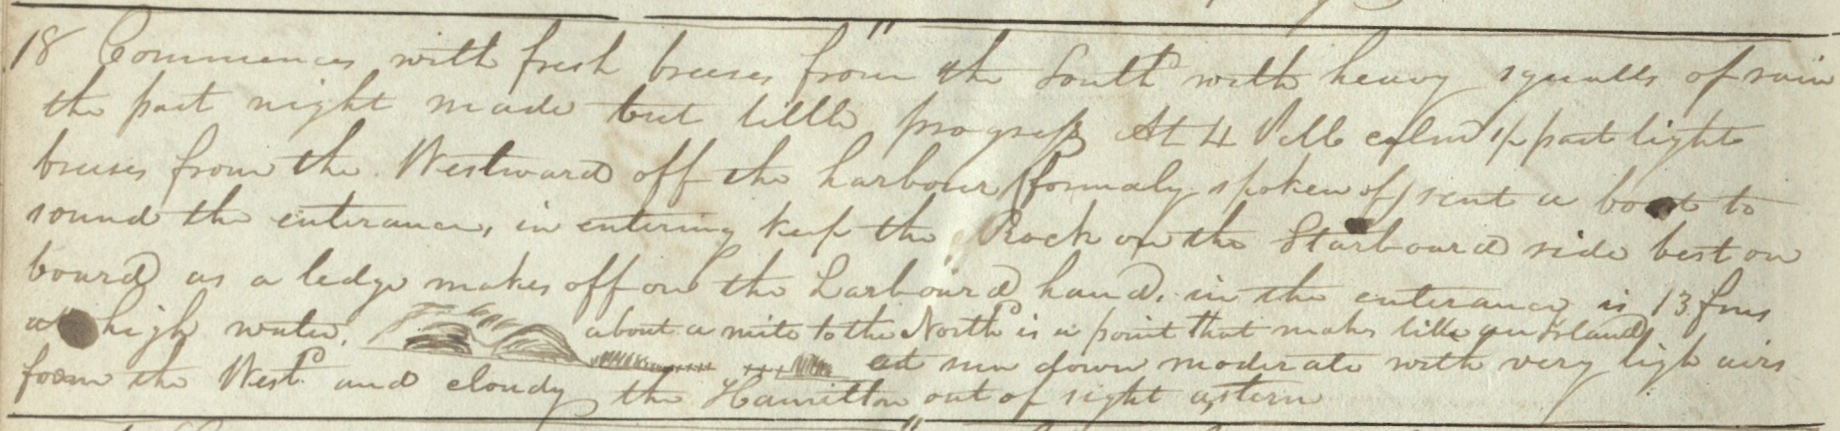 18 Commences with fresh breeses from the South with heavy squalls of rain
the past night made but little progress At 4 P M calm ½ past light
breeses from the Westward off the harbour (formaly spoken of) sent a boat to
sound the enterance, in entering keep the Rock on the Starboard side best on
board as a ledge makes off on the Larboard hand. in the enterance is 13 fms
at high water. about a mile to the Northd is a point that makes like an Island
at sun down moderate with very ligh airs
from the Westd and cloudy the Hamilton out of sight astern